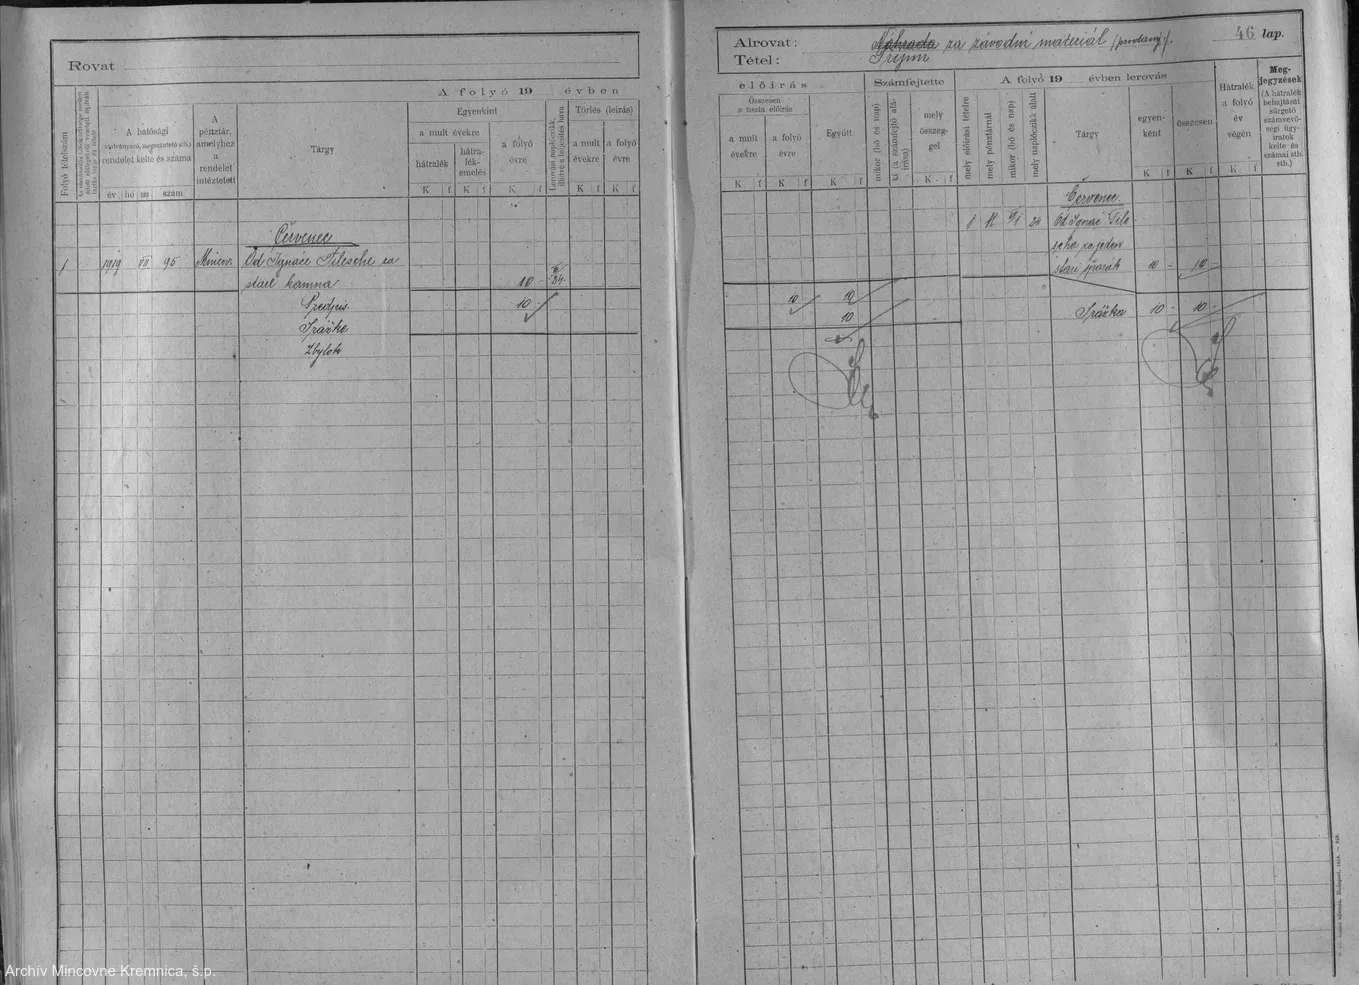 Rovat
A folyó 19 évben
Folyó tételszám
A hatósági
rendelet kelte és száma
év hó nap szám
A pénztár, amelyhez a rendelet intéztetett
Tárgy
Egyenkint
a mult évekre
hátralék
hátralékemelés
a folyó évre
Törlés (leírás)
a mult évekre
a folyó évre
K f K f K f K f K f
Červenec
1 1919 VII 95 Mincov. Od Ignáce Tilesche za
staré kamna 10 -
Predpis 10
Srážka
Zbytok
Alrovat: Náhrada za závodní materiál (prodaný).
Tétel: Príjmi
46 lap.
előírás
Összesen a tiszta előírás
a mult évekre
a folyó évre
Együtt
K f K f K f
Számfejtette
mikor (hó és nap)
ki (a számfejtő aláírása)
mely összeggel
K f
A folyó 19 évben lerovás
mely előírási tételre
mely pénztárnál
mikor (hó és nap)
mely naplócikk alatt
Tárgy
egyenként
összesen
K f K f
Hátralék a folyó év végén
K f
Megjegyzések
(A hátralék behajtását sürgető számvevőségi ügyiratok kelte és számai stb.)
Červenec
24 Od Ignáce Tile
sche za jeden
starý 10 - 10 -
10 10
10
Srážka 10 - 10 -
Archív Mincovne Kremnica, š.p.